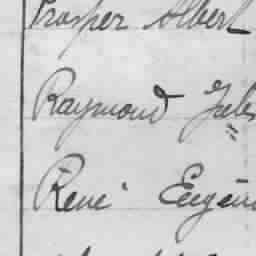 Prosper Albert
Raymond Jules
René Eugène